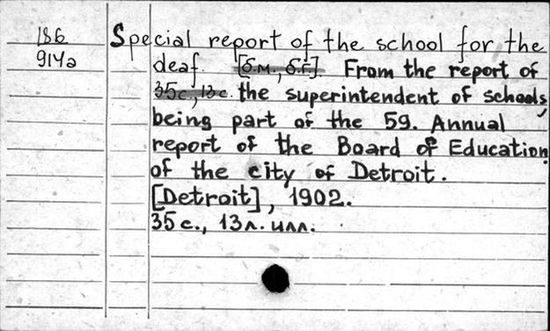 186
914a
Special report of the school for the
deaf. [б.м., б.г.] From the report of
35с., 13с. the superintendent of schools,
being part of the 59. Annual
report of the Board of Education
of the city of Detroit.
[Detroit], 1902.
35 с., 13 л. илл.